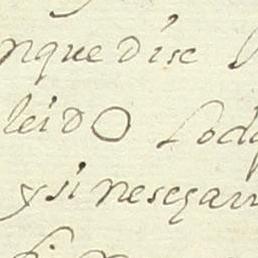 nque dise
leido Lod
y si nesesar